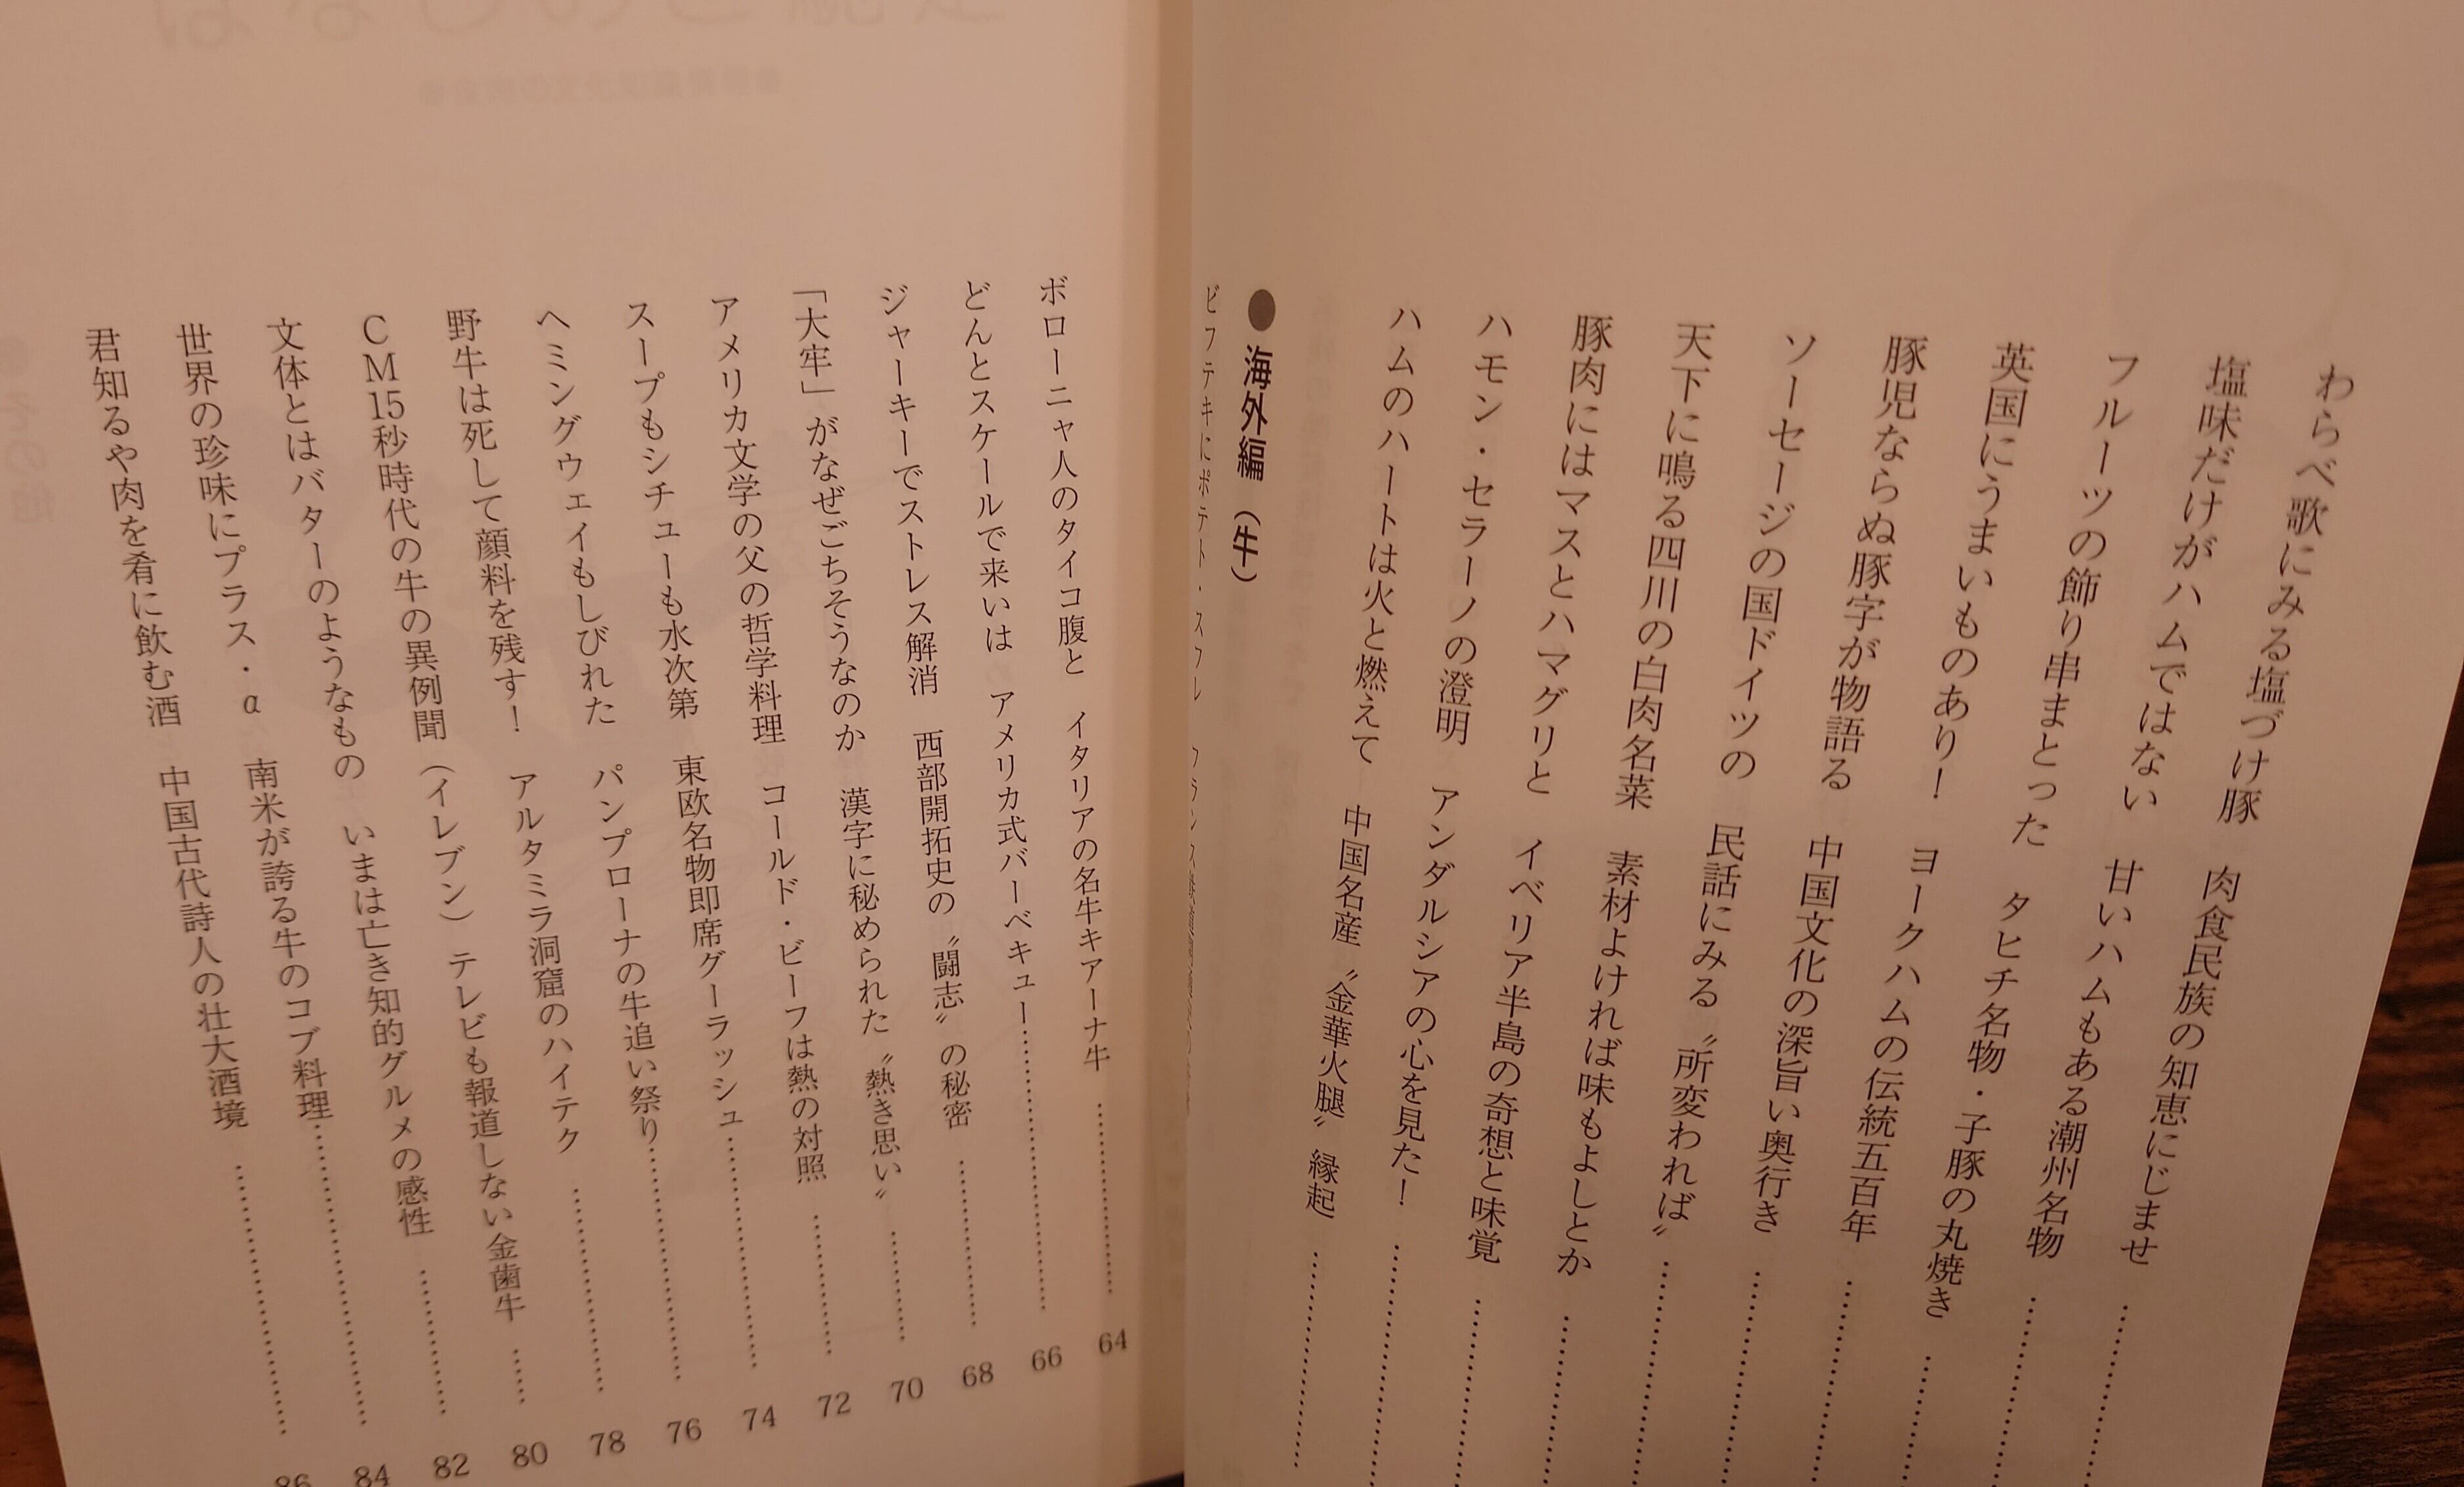 わらべ歌にみる塩づけ豚　肉食民族の知恵にじませ……………
塩味だけがハムではない　甘いハムもある潮州名物……………
フルーツの飾り串まとった　タヒチ名物・子豚の丸焼き……………
英国にうまいものあり！　ヨークハムの伝統五百年……………
豚児ならぬ豚字が物語る　中国文化の深旨い奥行き……………
ソーセージの国ドイツの　民話にみる〝所変われば〟……………
天下に鳴る四川の白肉名菜　素材よければ味もよしとか……………
豚肉にはマスとハマグリと　イベリア半島の奇想と味覚……………
ハモン・セラーノの澄明　アンダルシアの心を見た！……………
ハムのハートは火と燃えて　中国名産〝金華火腿〟縁起……………
●海外編（牛）
ビフテキにポテト・スフレ　フランス
ボローニャ人のタイコ腹と　イタリアの名牛キアーナ牛……………64
どんとスケールで来いは　アメリカ式バーベキュー……………66
ジャーキーでストレス解消　西部開拓史の〝闘志〟の秘密……………68
「大牢」がなぜごちそうなのか　漢字に秘められた〝熱き思い〟……………70
アメリカ文学の父の哲学料理　コールド・ビーフは熱の対照……………72
スープもシチューも水次第　東欧名物即席グーラッシュ……………74
ヘミングウェイもしびれた　パンプローナの牛追い祭り……………76
野牛は死して顔料を残す！　アルタミラ洞窟のハイテク……………78
ＣＭ15秒時代の牛の異例聞（イレブン）　テレビも報道しない金歯牛……80
文体とはバターのようなもの　いまは亡き知的グルメの感性……………82
世界の珍味にプラス・α　南米が誇る牛のコブ料理……………84
君知るや肉を肴に飲む酒　中国古代詩人の壮大酒境……………86